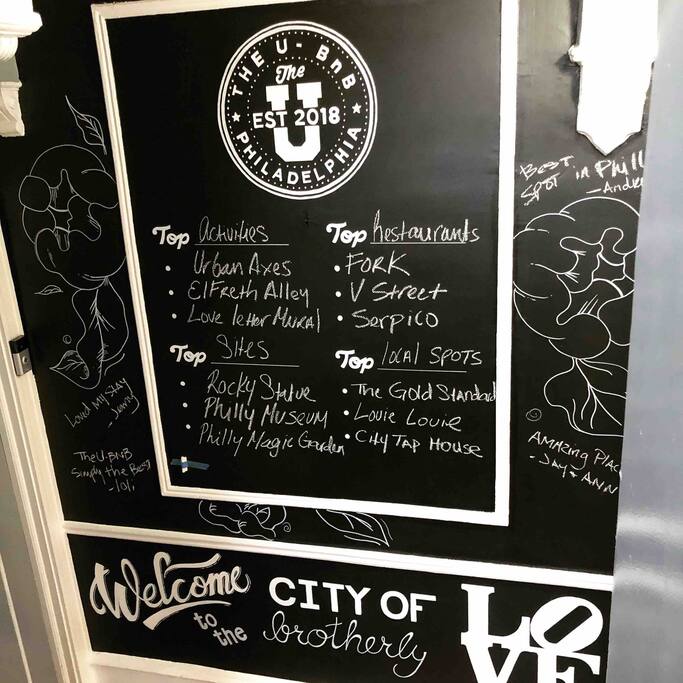 THE U-BnB
The
U
EST 2018
PHILADELPHIA
Top Activities
• Urban Axes
• ElFreth Alley
• Love letter Mural
Top Restaurants
• FORK
• V Street
• Serpico
Top Sites
• Rocky Statue
• Philly Museum
• Philly Magic Garden
Top local SPOTS
• The Gold Standard
• Louie Louie
• City Tap House
Loved My Stay
- Jenny
The U.BNB
Simply the Best
- loli
BEST in Philly
SPOT - Andre
Amazing Plac
- Jay + Ann
Welcome
to
the
CITY OF
brotherly
LOVE